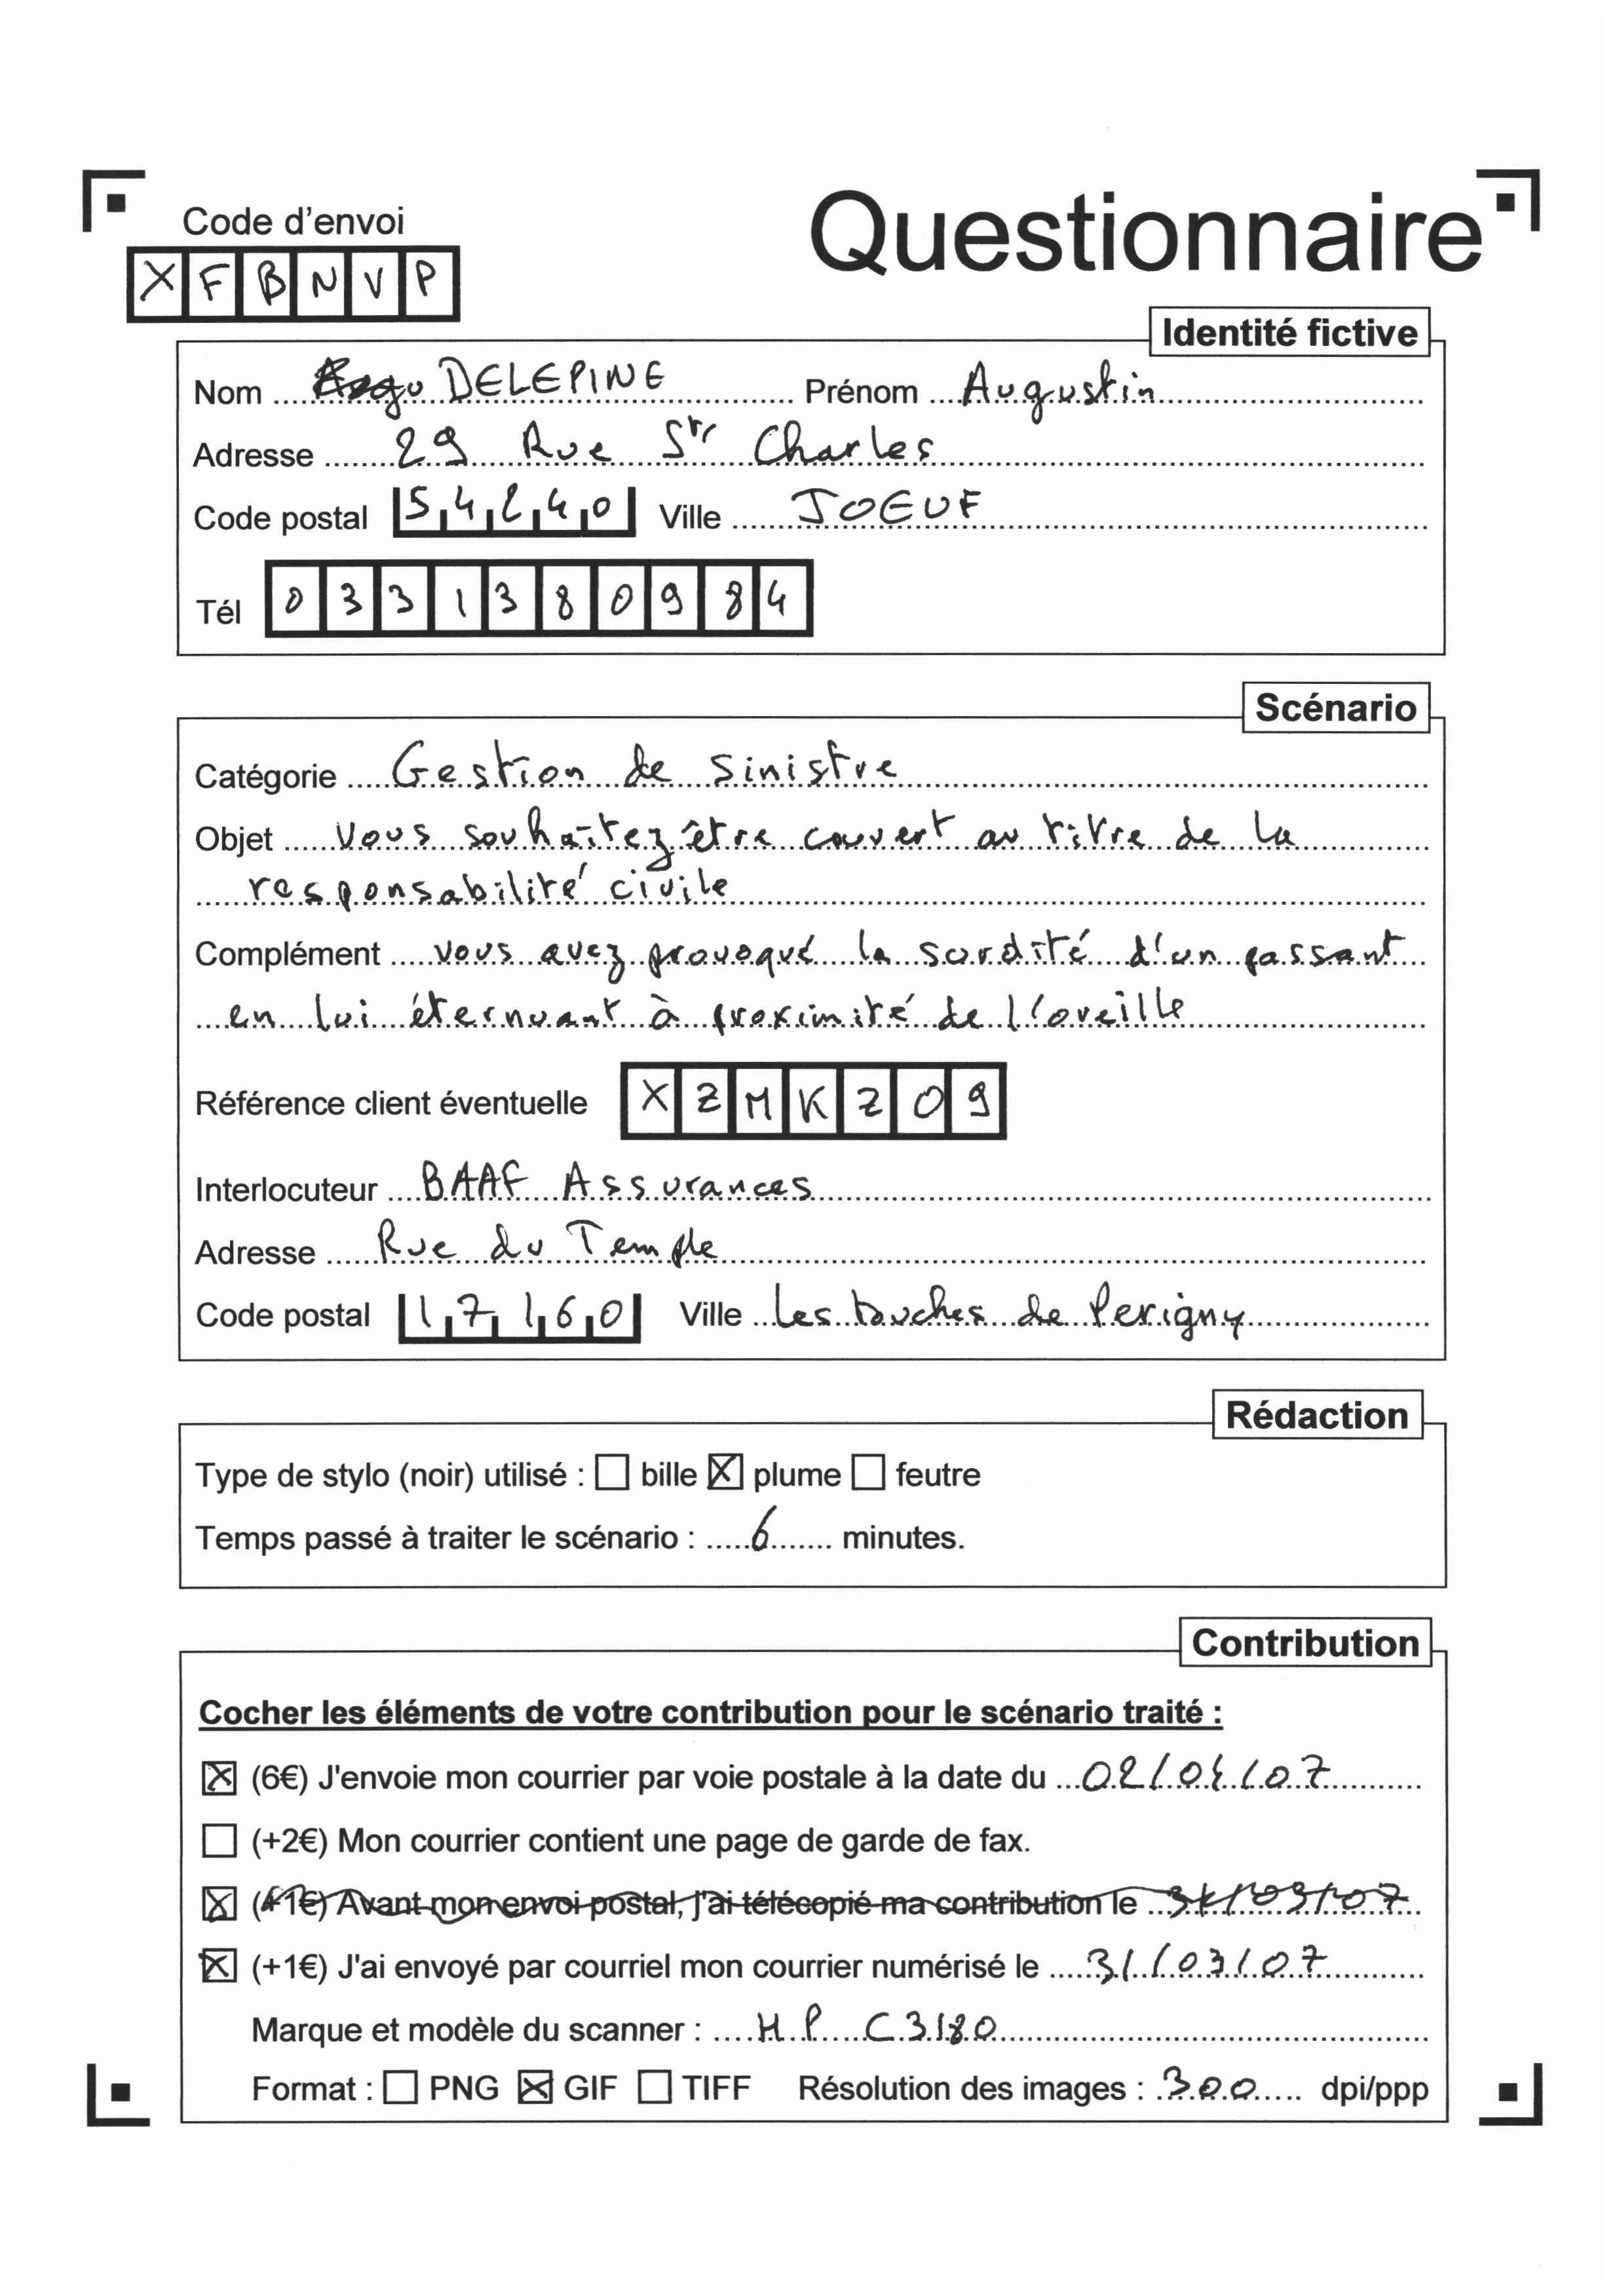 Code d'envoi
Questionnaire
XFBNVP
Identité fictive
Nom DELEPINE Prénom Augustin
Adresse 29 Rue Ste Charles
Code postal 54240 Ville JOEUF
Tél 0331380984
Scénario
Catégorie Gestion de sinistre
Objet Vous souhaitez être couvert au titre de la
responsabilité civile
Complément vous avez provoqué la surdité d'un passant
en lui éternuant à proximité de l'oreille
Référence client éventuelle XZMKZ09
Interlocuteur BAAF Assurances
Adresse Rue du Temple
Code postal 17160 Ville Les touches de Perigny
Rédaction
Type de stylo (noir) utilisé : ☐ bille ☒ plume ☐ feutre
Temps passé à traiter le scénario : 6 minutes.
Contribution
Cocher les éléments de votre contribution pour le scénario traité :
☒ (6€) J'envoie mon courrier par voie postale à la date du 02/04/07
☐ (+2€) Mon courrier contient une page de garde de fax.
☒ (+1€) Avant mon envoi postal, j'ai télécopié ma contribution le 31/03/07
☒ (+1€) J'ai envoyé par courriel mon courrier numérisé le 31/03/07
Marque et modèle du scanner : HP C3180
Format : ☐ PNG ☒ GIF ☐ TIFF Résolution des images : 300 dpi/ppp